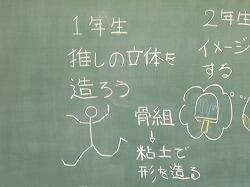 1年生
推しの立体を
造ろう
骨組
↓
粘土で
形を造る
2年生
イメージ
する